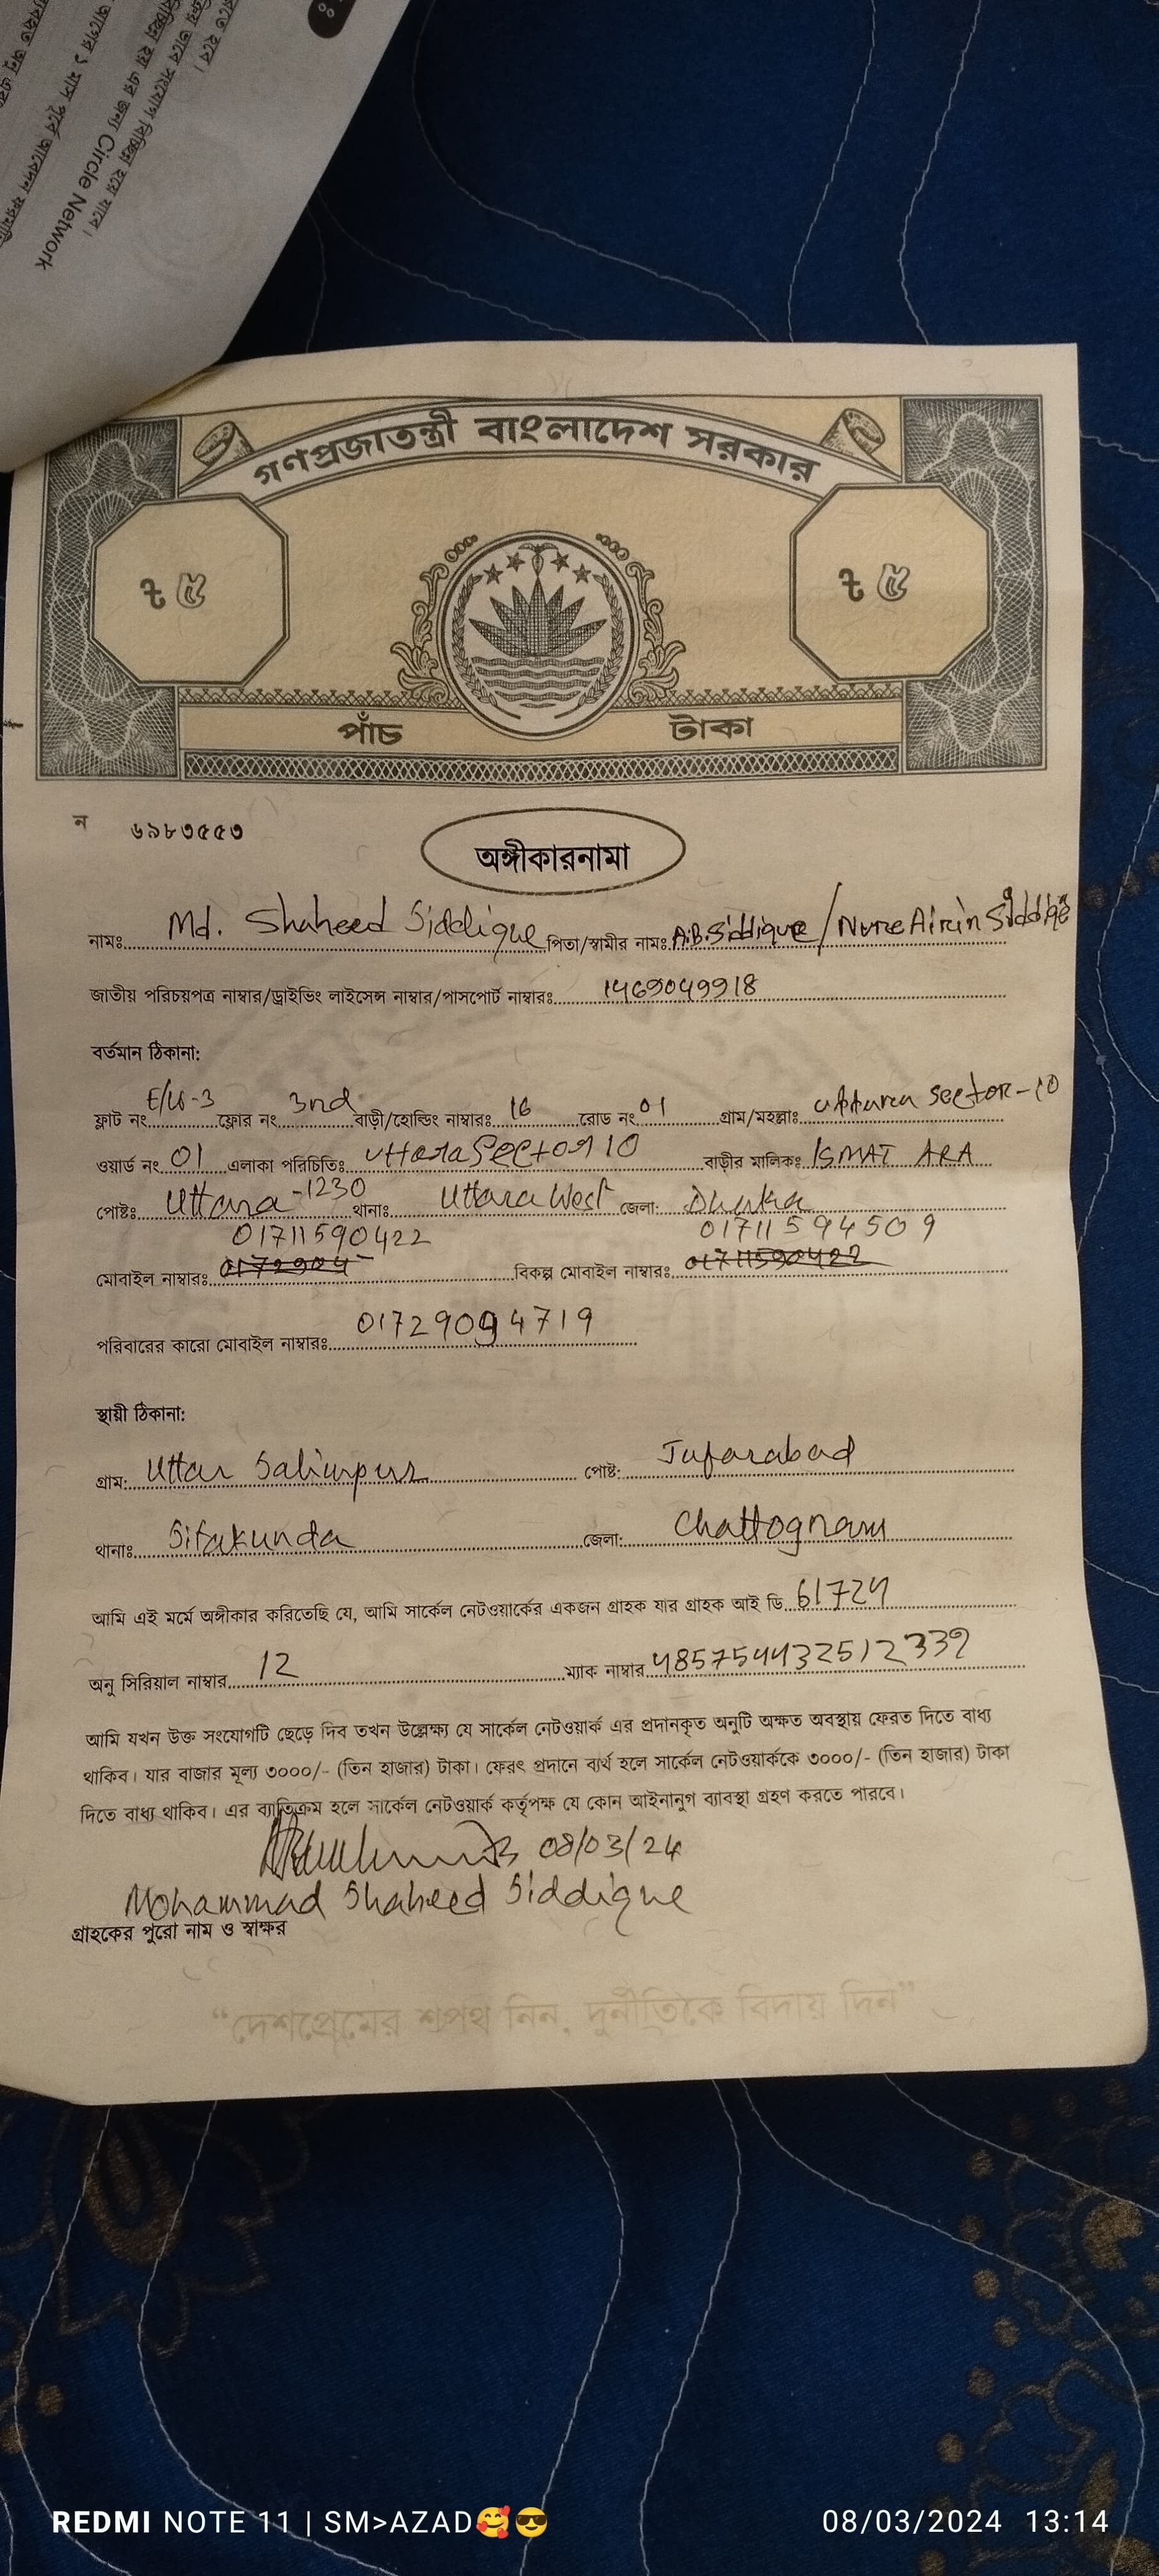 Circle Network
গণপ্রজাতন্ত্রী বাংলাদেশ সরকার
৳ ৫ ৳ ৫
পাঁচ টাকা
ন ৬৯৮৩৫৫৩
অঙ্গীকারনামা
নামঃ Md. Shaheed Siddique পিতা/স্বামীর নামঃ A.B.Siddique / Siddiqe
জাতীয় পরিচয়পত্র নাম্বার/ড্রাইভিং লাইসেন্স নাম্বার/পাসপোর্ট নাম্বারঃ 1469049918
বর্তমান ঠিকানা:
ফ্লাট নং ফ্লোর নং 3nd বাড়ী/হোল্ডিং নাম্বারঃ 16 রোড নং 01 গ্রাম/মহল্লাঃ Sector-10
ওয়ার্ড নং 01 এলাকা পরিচিতিঃ Uttara Sector 10 বাড়ীর মালিকঃ ISMAT ARA
পোষ্টঃ Uttara-1230 থানাঃ Uttara West জেলা: Dhaka
01711590422 01711594509
মোবাইল নাম্বারঃ বিকল্প মোবাইল নাম্বারঃ 01711590422
পরিবারের কারো মোবাইল নাম্বারঃ
স্থায়ী ঠিকানা:
গ্রাম: Uttar Salimpur পোষ্ট: Jafarabad
থানাঃ Sitakunda জেলা: Chattogram
আমি এই মর্মে অঙ্গীকার করিতেছি যে, আমি সার্কেল নেটওয়ার্কের একজন গ্রাহক যার গ্রাহক আই ডি 61724
অনু সিরিয়াল নাম্বার 12 ম্যাক নাম্বার 4857544432512339
আমি যখন উক্ত সংযোগটি ছেড়ে দিব তখন উল্লেক্ষ্য যে সার্কেল নেটওয়ার্ক এর প্রদানকৃত অনুটি অক্ষত অবস্থায় ফেরত দিতে বাধ্য
থাকিব। যার বাজার মূল্য ৩০০০/- (তিন হাজার) টাকা। ফেরৎ প্রদানে ব্যর্থ হলে সার্কেল নেটওয়ার্ককে ৩০০০/- (তিন হাজার) টাকা
দিতে বাধ্য থাকিব। এর ব্যতিক্রম হলে সার্কেল নেটওয়ার্ক কর্তৃপক্ষ যে কোন আইনানুগ ব্যাবস্থা গ্রহণ করতে পারবে।
08/03/24
Mohammad Shaheed Siddique
গ্রাহকের পুরো নাম ও স্বাক্ষর
“দেশপ্রেমের শপথ নিন, দুর্নীতিকে বিদায় দিন”
REDMI NOTE 11 | SM>AZAD🥰😎 08/03/2024 13:14